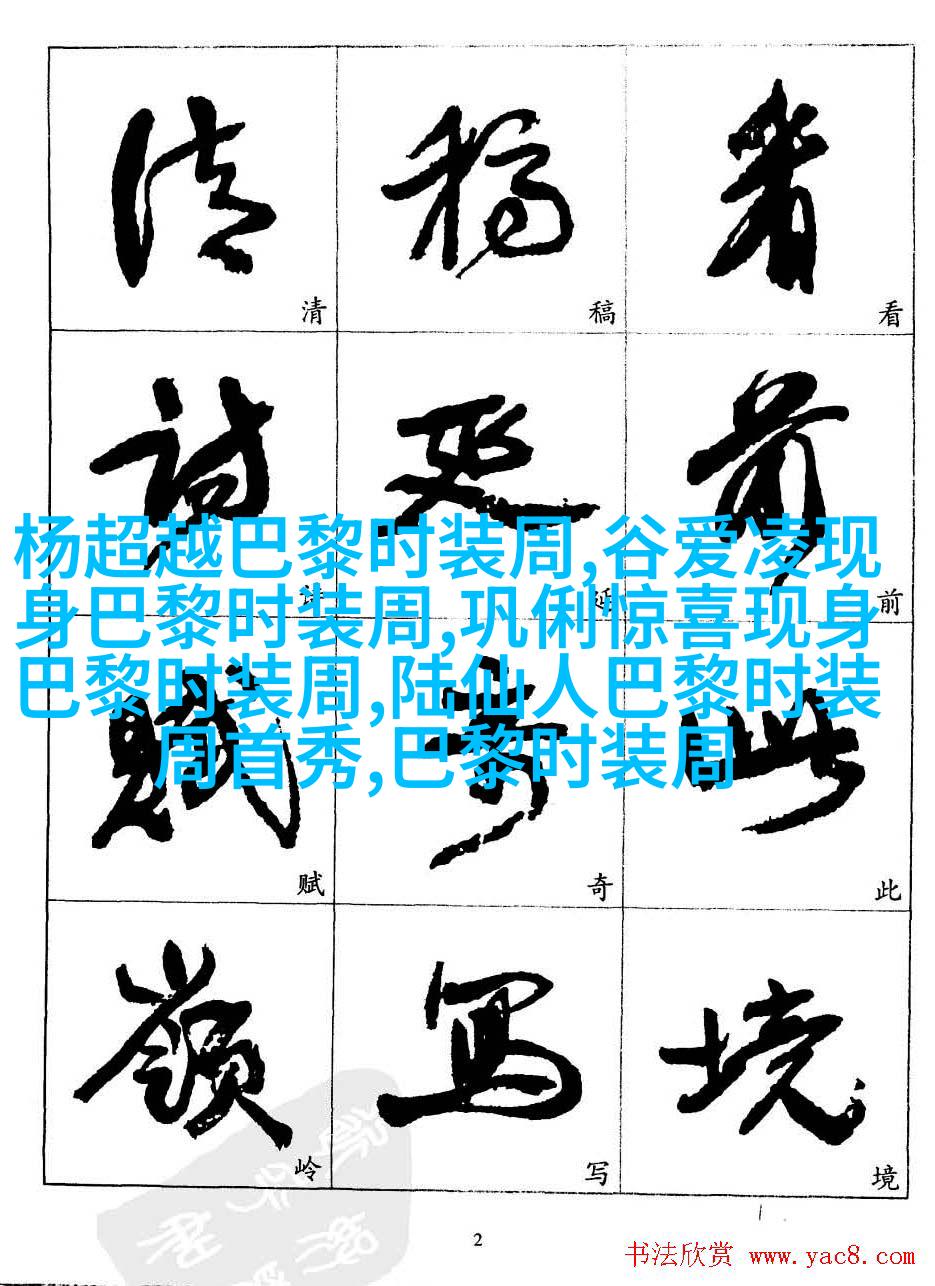 清 稿 看
清 稿 看
詩 延 前
杨超越巴黎时装周,谷爱凌现
身巴黎时装周,巩俐惊喜现身
巴黎时装周,陆仙人巴黎时装
周首秀,巴黎时装周
诗 延 前
賦 奇 此
赋 奇 此
嶺 寫 境
岭 写 境
2
书法欣赏 www.yac8.com